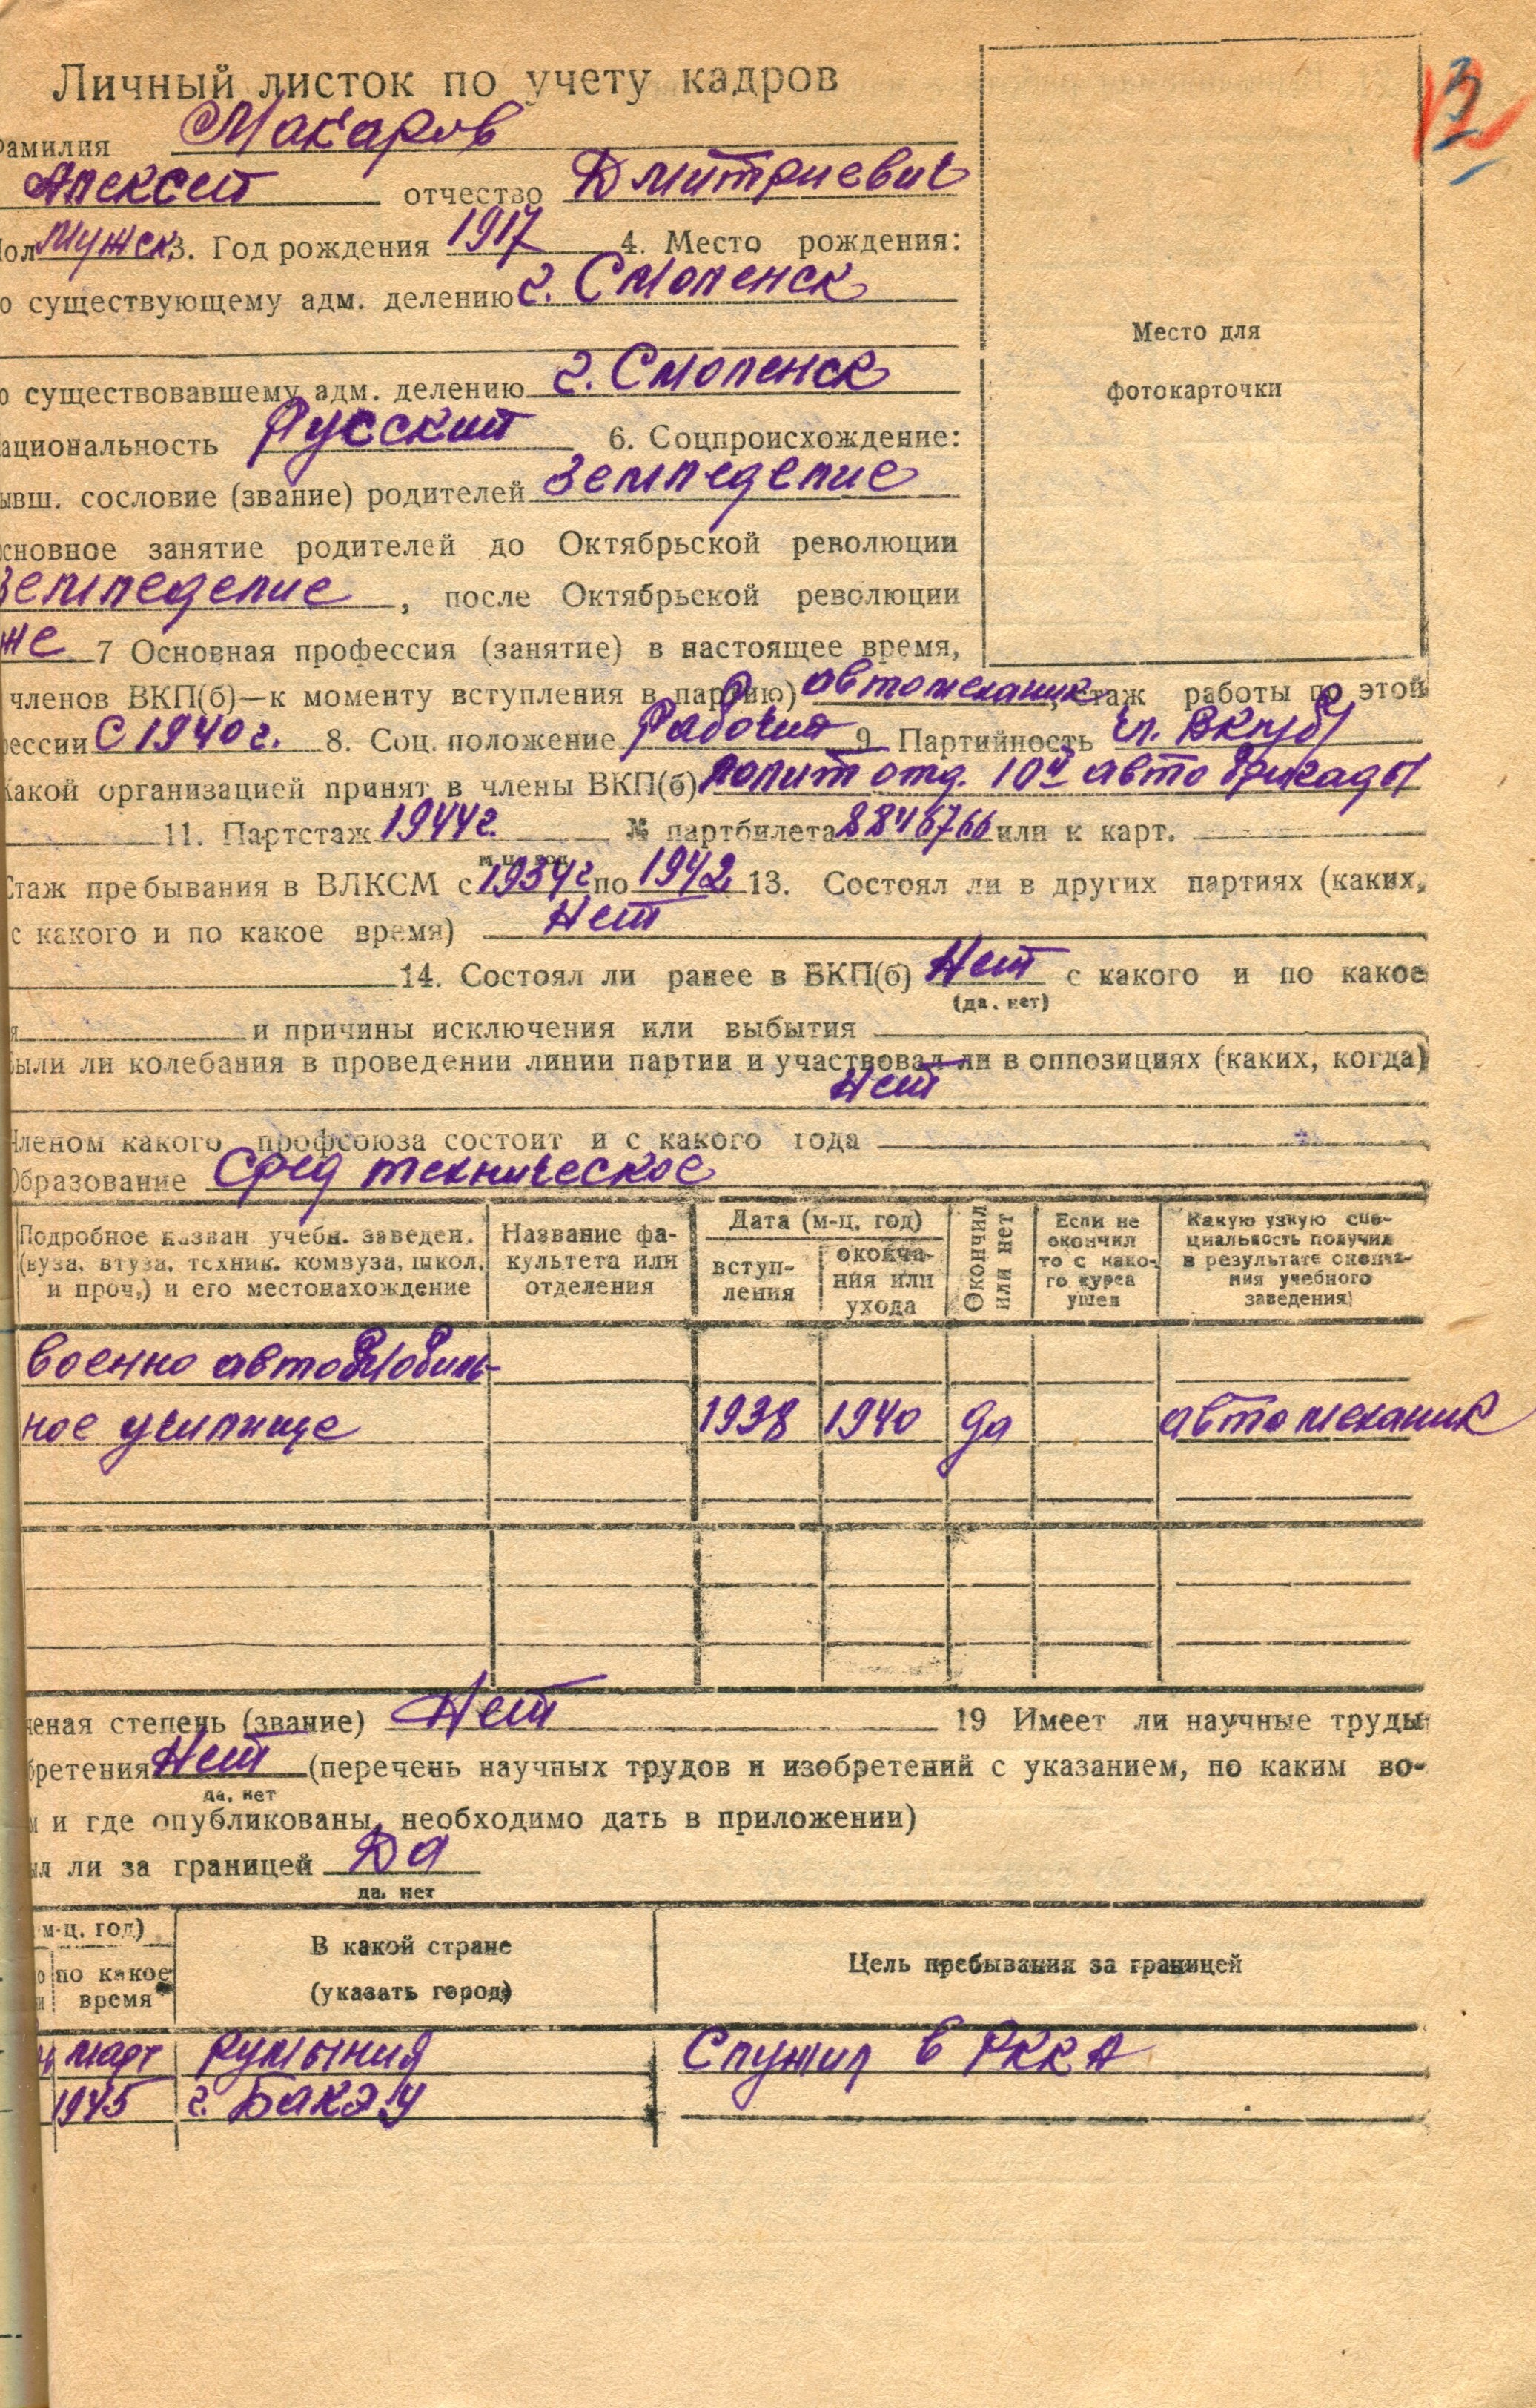 Личный листок по учету кадров
Фамилия Макаров
Алексей отчество Дмитриевич
Пол Мужск. 3. Год рождения 1917 4. Место рождения:
о существующему адм. делению г. Смоленск
о существовавшему адм. делению г. Смоленск
ациональность Русский 6. Соцпроисхождение:
ывш. сословие (звание) родителей Земледелие
сновное занятие родителей до Октябрьской революции
Земледелие, после Октябрьской революции
же 7 Основная профессия (занятие) в настоящее время,
членов ВКП(б)—к моменту вступления в партию) автомеханик стаж работы по этой
ессии С 1940 г. 8. Соц. положение Рабочий 9 Партийность чл. ВКП(б)
Какой организацией принят в члены ВКП(б) политотд. 10й автобригады
11. Партстаж 1944 г. № партбилета 8846766 или к карт.
Стаж пребывания в ВЛКСМ с 1934 г по 1942 13. Состоял ли в других партиях (каких,
с какого и по какое время) Нет
14. Состоял ли ранее в ВКП(б) Нет с какого и по какое
(да. нет)
я и причины исключения или выбытия
Были ли колебания в проведении линии партии и участвовал ли в оппозициях (каких, когда)
Нет
Членом какого профсоюза состоит и с какого года
Образование Сред техническое
Подробное назван учебн. заведен. (вуза, втуза, техник. комвуза, школ. и проч.) и его местонахождение
Название факультета или отделения
Дата (м-ц. год)
вступ-
ления
оконча-
ния или
ухода
Окончил
или нет
Если не
окончил
то с како-
го курса
ушел
Какую узкую спе-
циальность получил
в результате оконча-
ния учебного
заведения)
военно автомобиль-
ное училище 1938 1940 да автомеханик
ченая степень (звание) Нет 19 Имеет ли научные труды
бретения Нет (перечень научных трудов и изобретений с указанием, по каким во-
да, нет
м и где опубликованы, необходимо дать в приложении)
ыл ли за границей Да
да. нет
м-ц. год)
по какое
время
В какой стране
(указать город)
Цель пребывания за границей
март Румыния Служил в РККА
1945 г. Бакэу
Место для
фотокарточки